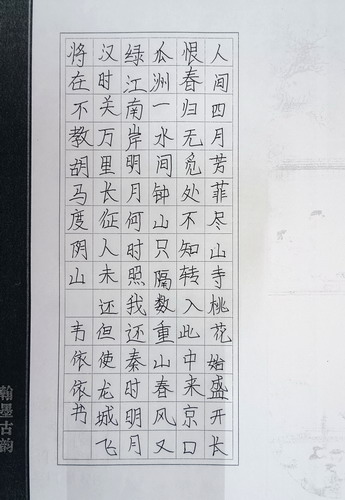 人间四月芳菲尽山寺桃花始盛开长
恨春归无觅处不知转入此中来京口
瓜洲一水间钟山只隔数重山春风又
绿江南岸明月何时照我还秦时明月
汉时关万里长征人未还但使龙城飞
将在不教胡马度阴山 韦依依书
翰墨古韵